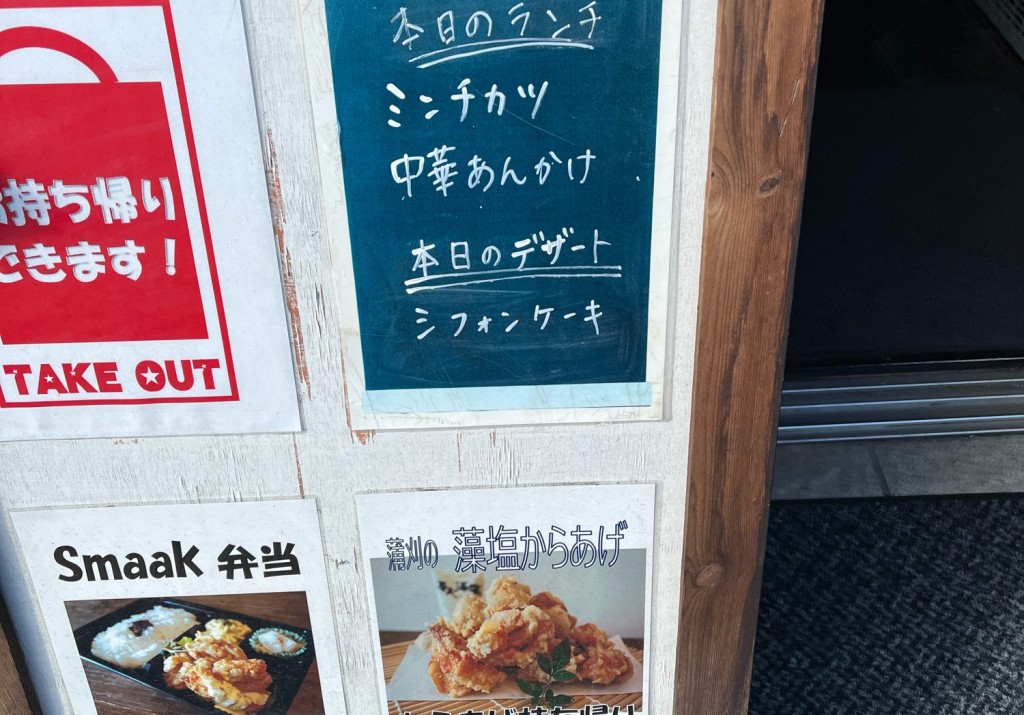 お持ち帰り
できます！
TAKE OUT
本日のランチ
ミンチカツ
中華あんかけ
本日のデザート
シフォンケーキ
Smaak 弁当
蒲刈の 藻塩からあげ
からあげ持ち帰り